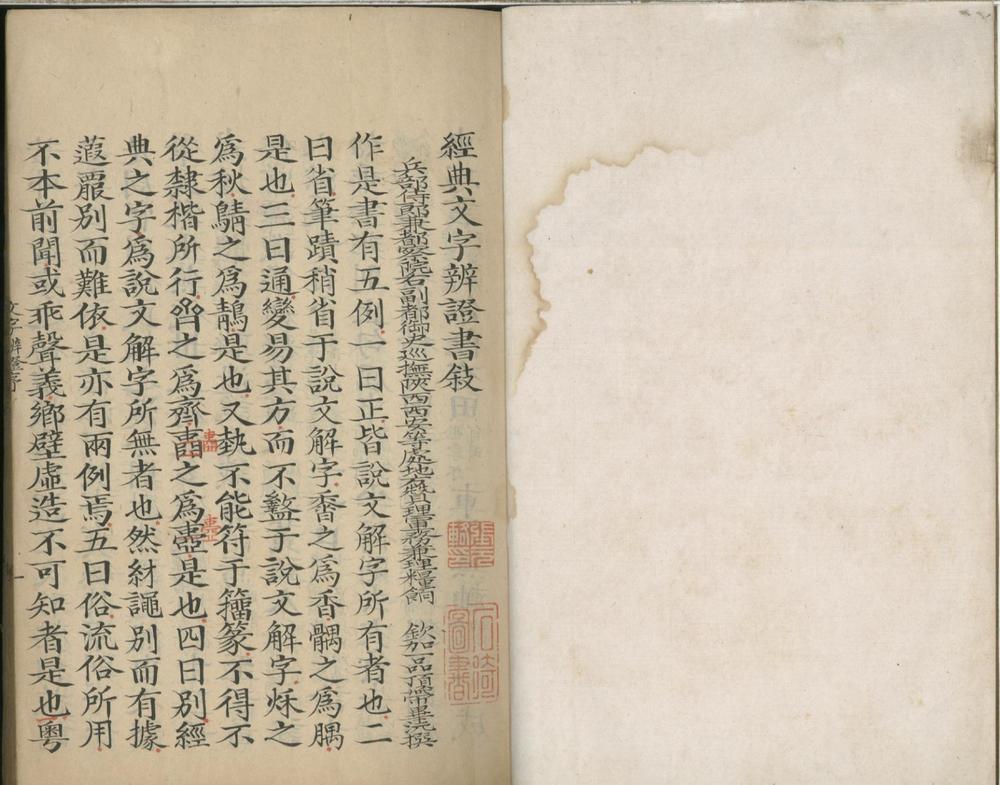 經典文字辨證書敍
兵部侍郎兼都察院右副都御史巡撫陝西西安等處地方贊理軍務兼理糧餉 欽加一品頂帶畢沅撰
作是書有五例一曰正皆說文解字所有者也二
曰省筆蹟稍省于說文解字香之爲香髃之爲腢
是也三曰通變易其方而不盭于說文解字烁之
爲秋鶄之爲䴖是也又埶不能符于籀篆不得不
從隸楷所行𠫼之爲齊𧖅之爲盡是也四曰別經
典之字爲說文解字所無者也然紂譝別而有據
蕸覼別而難依是亦有兩例焉五曰俗流俗所用
不本前聞或乖聲義鄉壁虛造不可知者是也粤
文字辨證序
一